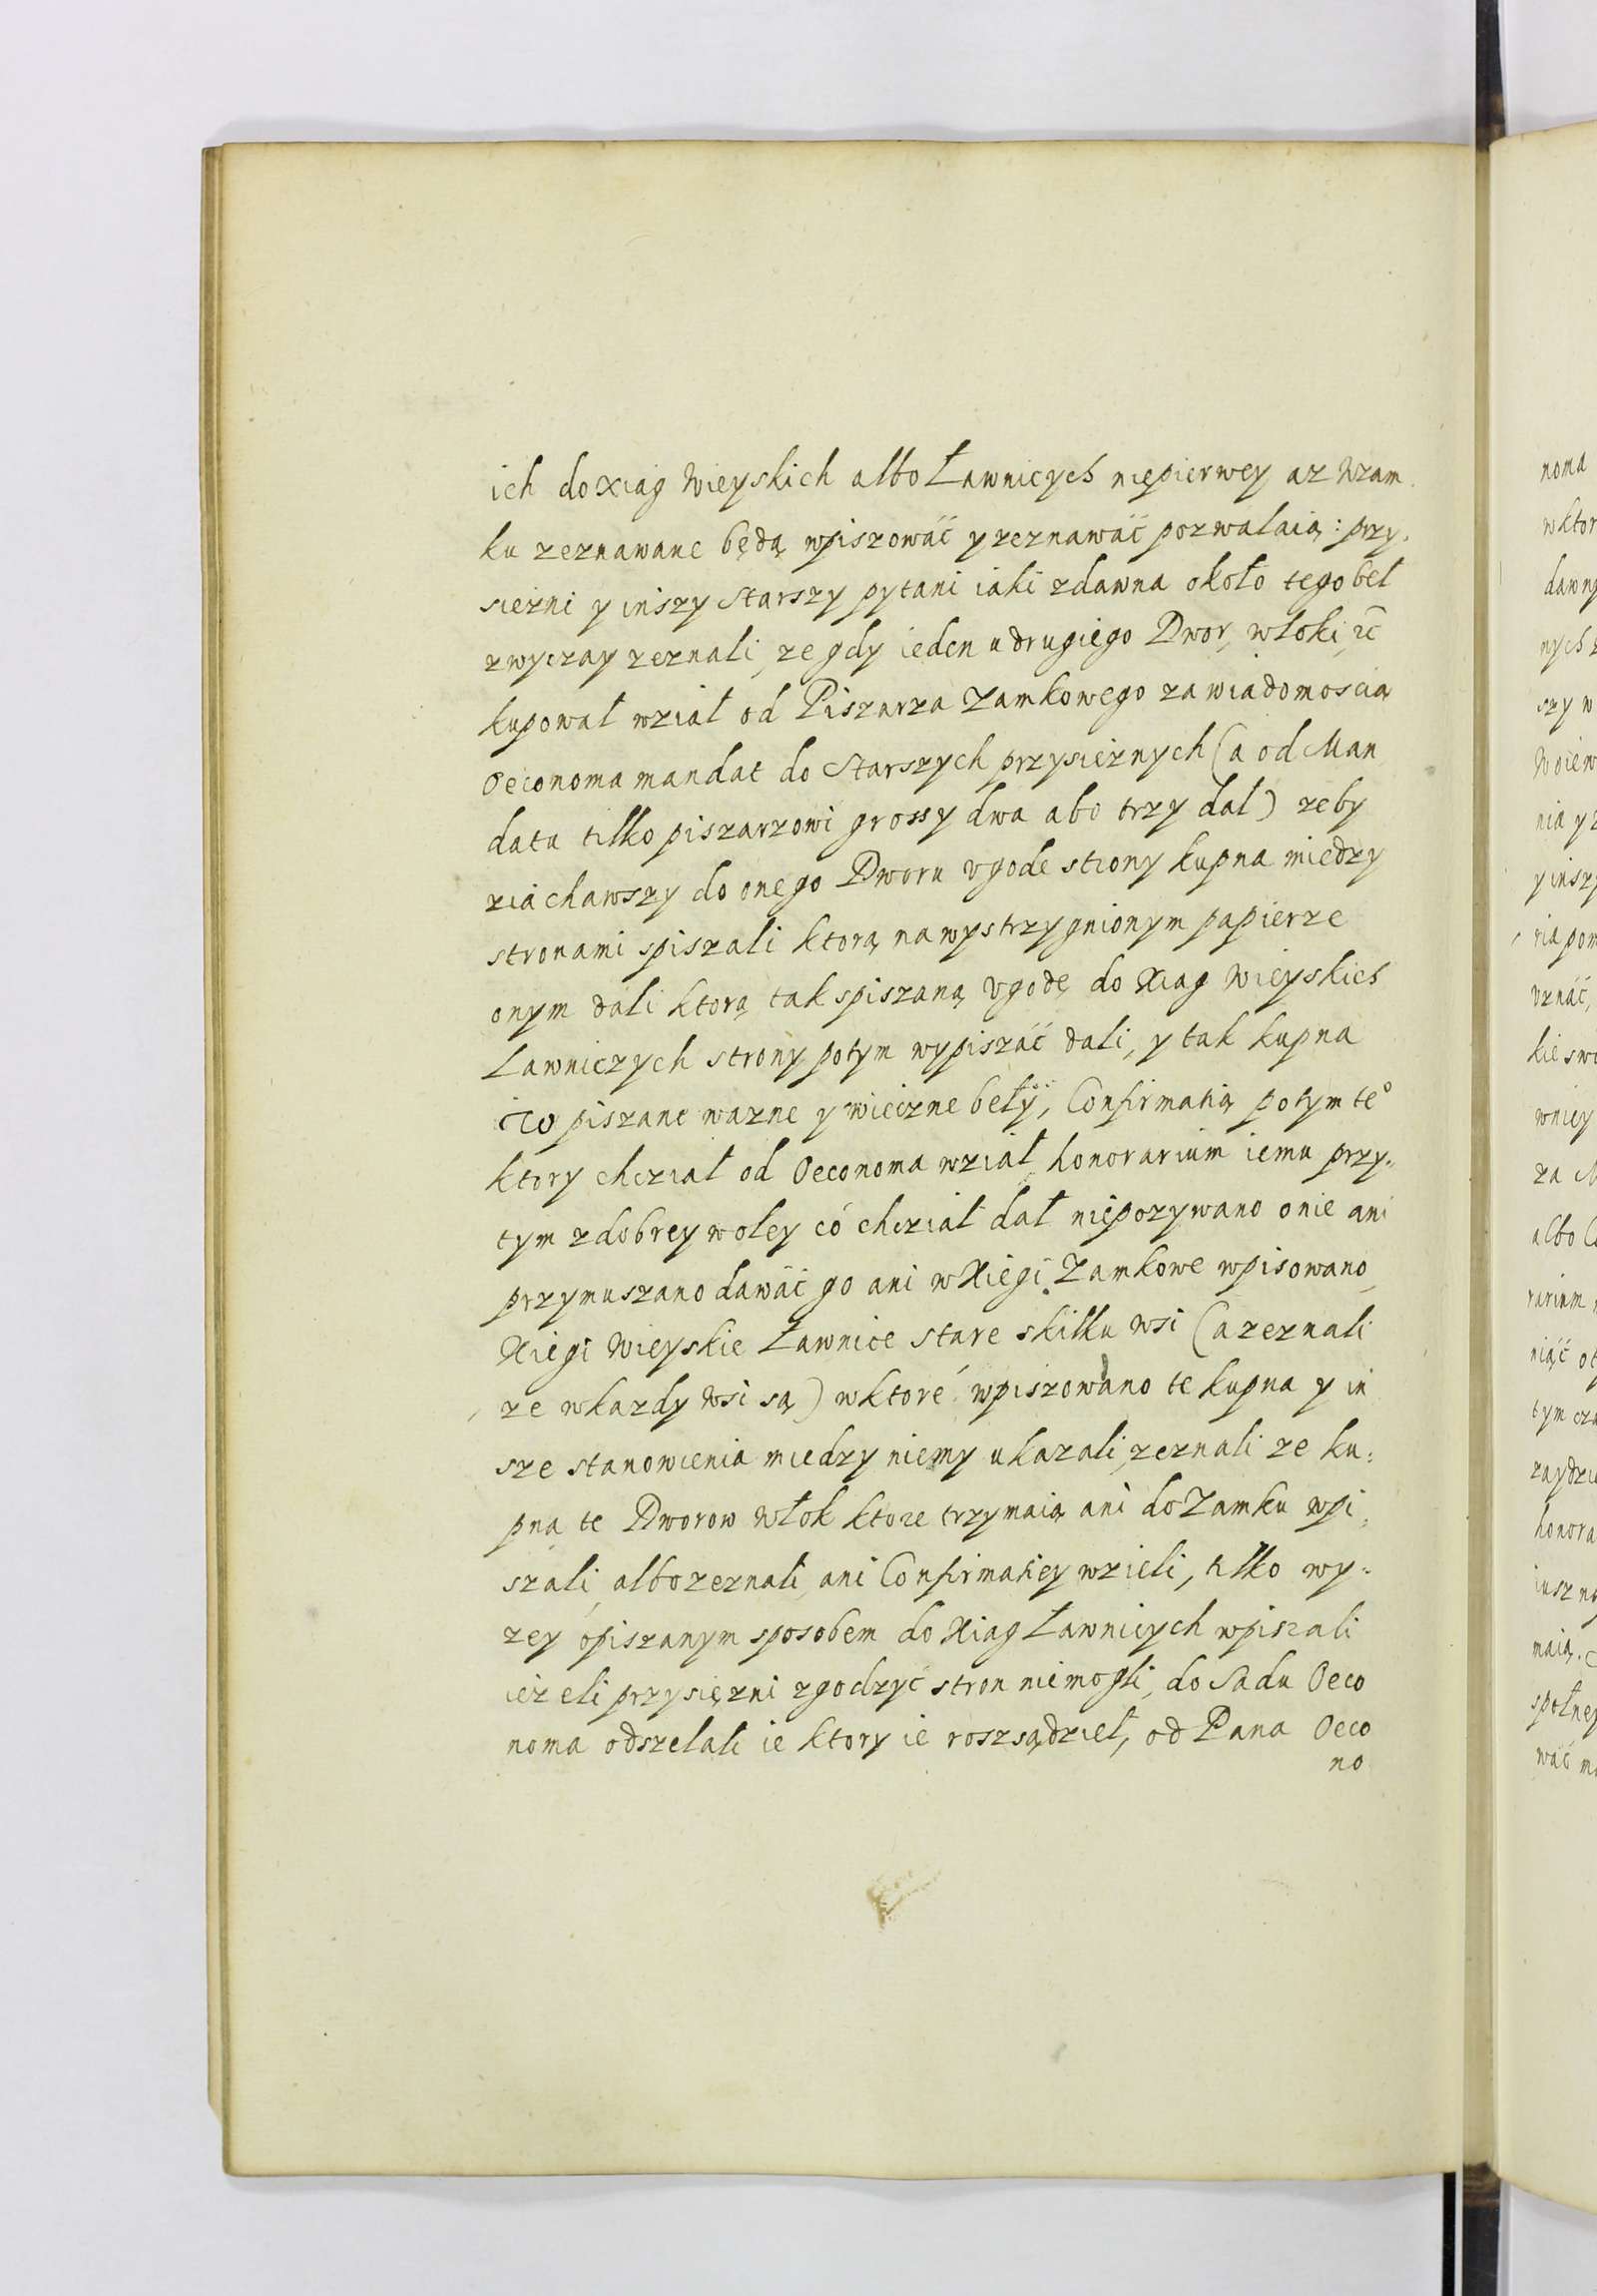 ich do Xiąg Wieyskich albo Ławnicych niepierwey az Wzam
ku zeznawane będą wpiszowäć y zeznawäć pozwalaią: przy,
siezni y inszy Starszy pytani iaki zdawna około tego beł
zwyczay zeznali, ze gdy ieden u drugiego Dwor, włoki, ѿc
kupował wział od Piszarza Zamkowego za wiadomoscią
Oeconoma mandat do Starszych przysieznych (a od Man
datu tilko piszarzowi grossy dwa abo trzy dał) zeby
ziachawszy do onego Dworu vgode strony kupna miedzy
stronami spiszali ktorą na wystrzygnionym papierze
onym dali ktorą tak spiszaną vgodę do Xiag Wieyskich
Lawniczych strony potym wypiszäć dali, y tak kupna
To piszane wazne y wieczne beły, Confirmatią potym te°
ktory chcział od Oeconoma wział, honorarium iemu przy,
tym z dobrey woley có chcział dał niepozywano o nie ani
przymuszano dawäć go ani w Xiegi Zamkowe wpisowano,
Xiegi Wieyskie Ławnice stare s kilku Wsi (a zeznali
ze w kazdy Wsi są) w ktoré wpiszowano te kupna y in
sze stanowienia miedzy niemy ukazali, zeznali ze ku,
pna te Dworow Włok ktore trzymaią ani do Zamku wpi,
szali, albo zeznali, ani Confirmatiey wzieli, tilko wy,
zey opiszanym sposobem do Xiag Ławnicych wpiszali
iezeli przysięzni zgodzyć stron niemogli, do Sadu Oeco
noma odszelali ie ktory ie roszsądzieł, od Pana Oeco
no
nona
w ktor
dawny
nych
szy w
Woiew
nia y z
y inszy
ria pom
vznäć,
kie swo
wniey
za M
albo C
rarium
niąć ot
tym cza
zaydzie
honora
iusz na
maią.
społney
wäć m